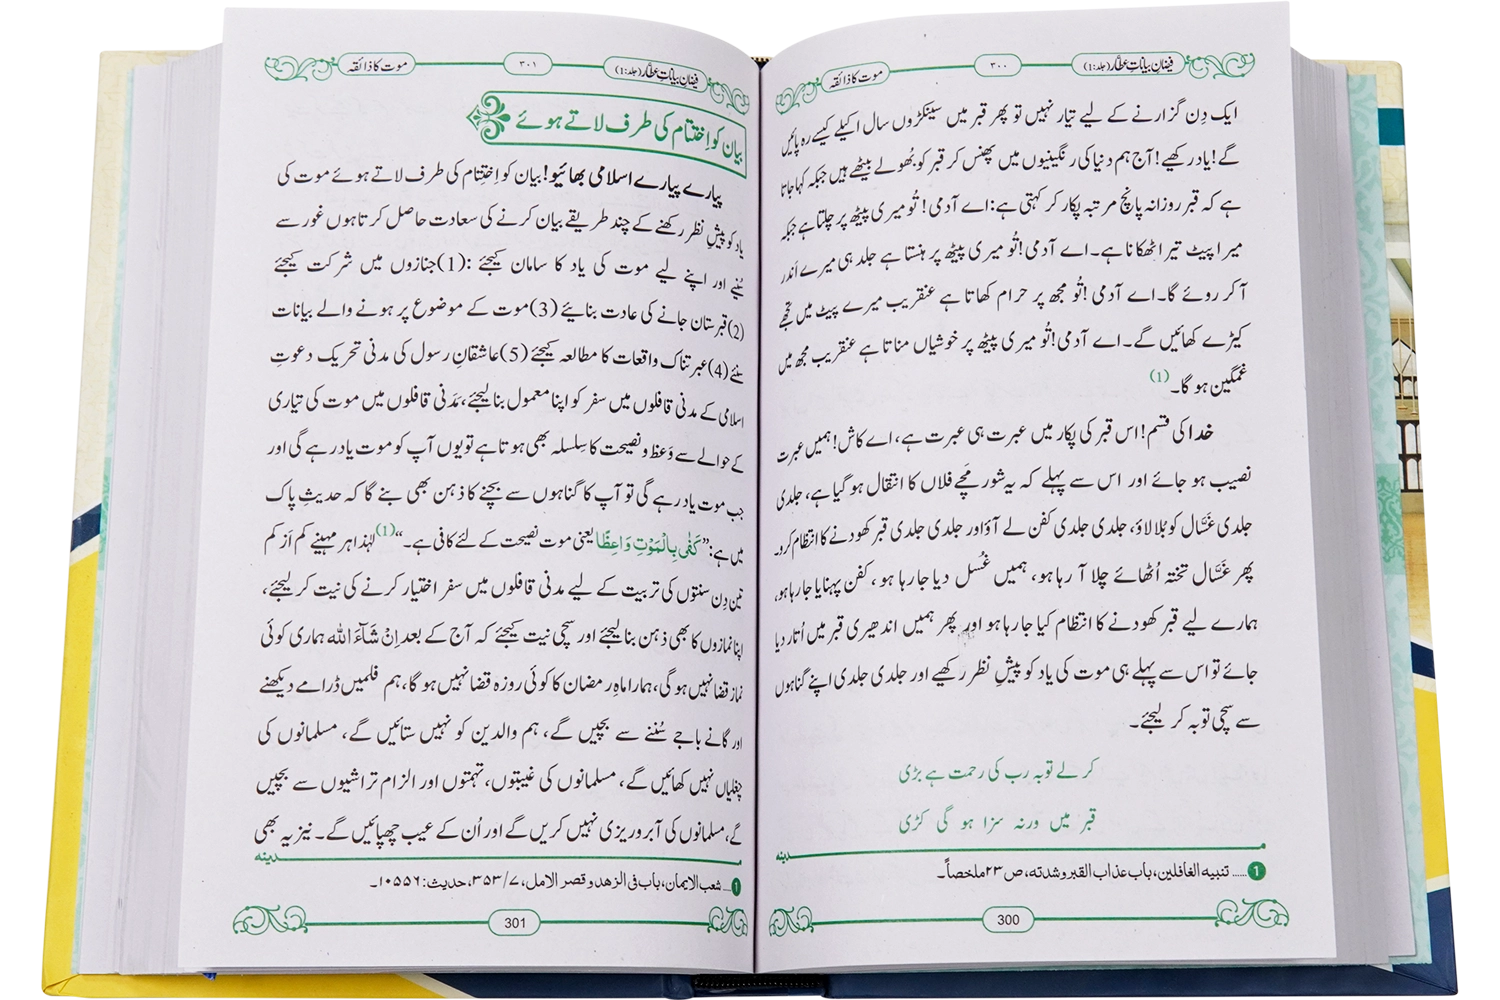 فیضانِ بیاناتِ عطار (جلد:1)
۳۰۰
موت کا ذائقہ
ایک دِن گزارنے کے لیے تیار نہیں تو پھر قبر میں سینکڑوں سال اکیلے کیسے رہ پائیں
گے! یاد رکھیے! آج ہم دنیا کی رنگینیوں میں پھنس کر قبر کو بُھولے بیٹھے ہیں جبکہ کہا جاتا
ہے کہ قبر روزانہ پانچ مرتبہ پکار کر کہتی ہے: اے آدمی! تُو میری پیٹھ پر چلتا ہے جبکہ
میرا پیٹ تیرا ٹھکانا ہے۔ اے آدمی! تُو میری پیٹھ پر ہنستا ہے جلد ہی میرے اَندر
آکر روئے گا۔ اے آدمی! تُو مجھ پر حرام کھاتا ہے عنقریب میرے پیٹ میں تجھے
کیڑے کھائیں گے۔ اے آدمی! تُو میری پیٹھ پر خوشیاں مناتا ہے عنقریب مجھ میں
غمگین ہو گا۔ (1)
خدا کی قسم! اس قبر کی پکار میں عبرت ہی عبرت ہے، اے کاش! ہمیں عبرت
نصیب ہو جائے اور اس سے پہلے کہ یہ شور مچے فلاں کا انتقال ہو گیا ہے، جلدی
جلدی غسّال کو بُلا لاؤ، جلدی جلدی کفن لے آؤ اور جلدی جلدی قبر کھودنے کا انتظام کرو۔
پھر غسّال تختہ اُٹھائے چلا آ رہا ہو، ہمیں غُسل دیا جا رہا ہو، کفن پہنایا جا رہا ہو،
ہمارے لیے قبر کھودنے کا انتظام کیا جا رہا ہو اور پھر ہمیں اندھیری قبر میں اُتار دیا
جائے تو اس سے پہلے ہی موت کی یاد کو پیشِ نظر رکھیے اور جلدی جلدی اپنے گناہوں
سے سچی توبہ کر لیجئے۔
کر لے توبہ رب کی رحمت ہے بڑی
قبر میں ورنہ سزا ہو گی کڑی
مدینہ
1 ..... تنبیه الغافلین، باب عذاب القبر وشدته، ص ۲۳ ملخصاً۔
300
فیضانِ بیاناتِ عطار (جلد:1)
۳۰۱
موت کا ذائقہ
بیان کو اِختتام کی طرف لاتے ہوئے
پیارے پیارے اسلامی بھائیو! بیان کو اِختِتام کی طرف لاتے ہوئے موت کی
یاد کو پیشِ نظر رکھنے کے چند طریقے بیان کرنے کی سعادت حاصل کرتا ہوں غور سے
سُنیے اور اپنے لیے موت کی یاد کا سامان کیجئے: (1) جنازوں میں شرکت کیجئے
(2) قبرستان جانے کی عادت بنائیے (3) موت کے موضوع پر ہونے والے بیانات
سنئے (4) عبرتناک واقعات کا مطالعہ کیجئے (5) عاشقانِ رسول کی مدنی تحریک دعوتِ
اسلامی کے مدنی قافلوں میں سفر کو اپنا معمول بنا لیجئے، مَدَنی قافلوں میں موت کی تیاری
کے حوالے سے وَعظ و نصیحت کا سِلسلہ بھی ہوتا ہے تو یوں آپ کو موت یاد رہے گی اور
جب موت یاد رہے گی تو آپ کا گناہوں سے بچنے کا ذہن بھی بنے گا کہ حدیثِ پاک
میں ہے: ”کَفٰی بِالْمَوْتِ وَاعِظًا یعنی موت نصیحت کے لئے کافی ہے۔“ (1) لہٰذا ہر مہینے کم اَز کم
تین دِن سنتوں کی تربیت کے لیے مدنی قافلوں میں سفر اختیار کرنے کی نیت کر لیجئے،
اپنا نمازوں کا بھی ذہن بنا لیجئے اور سچی نیت کیجئے کہ آج کے بعد اِنْ شَآءَ اللہ ہماری کوئی
نماز قضا نہیں ہو گی، ہمارا ماہِ رمضان کا کوئی روزہ قضا نہیں ہو گا، ہم فلمیں ڈرامے دیکھنے
اور گانے باجے سُننے سے بچیں گے، ہم والدین کو نہیں ستائیں گے، مسلمانوں کی
چغلیاں نہیں کھائیں گے، مسلمانوں کی غیبتوں، تہمتوں اور الزام تراشیوں سے بچیں
گے، مسلمانوں کی آبرو ریزی نہیں کریں گے اور اُن کے عیب چھپائیں گے۔ نیز یہ بھی
مدینہ
1 ... شعب الایمان، باب فی الزهد وقصر الامل، ۷/۳۵۳، حدیث: ۱۰۵۵۶۔
301